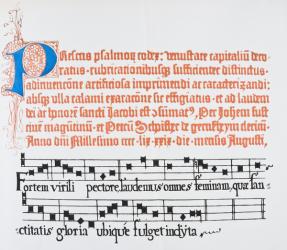 Presens psalmorum codex: venustate capitaliū deco-
ratus. rubricationibusque sufficienter distinctus.
adinuencōne artificiosa imprimendi ac caracterizandi:
absque ulla calami exaracōne sic effigiatus. et ad laudem
dei ac honorē sancti Jacobi est Per Johem fust
ciuē magūtinū. et Petrū de gernszheym clericū.
Anno dñi Millesimo cccc lix. xxix. die mensis Augusti.
Fortem virili pectore, laudemus omnes feminam, quæ san-
ctitatis gloria ubique fulget indyta